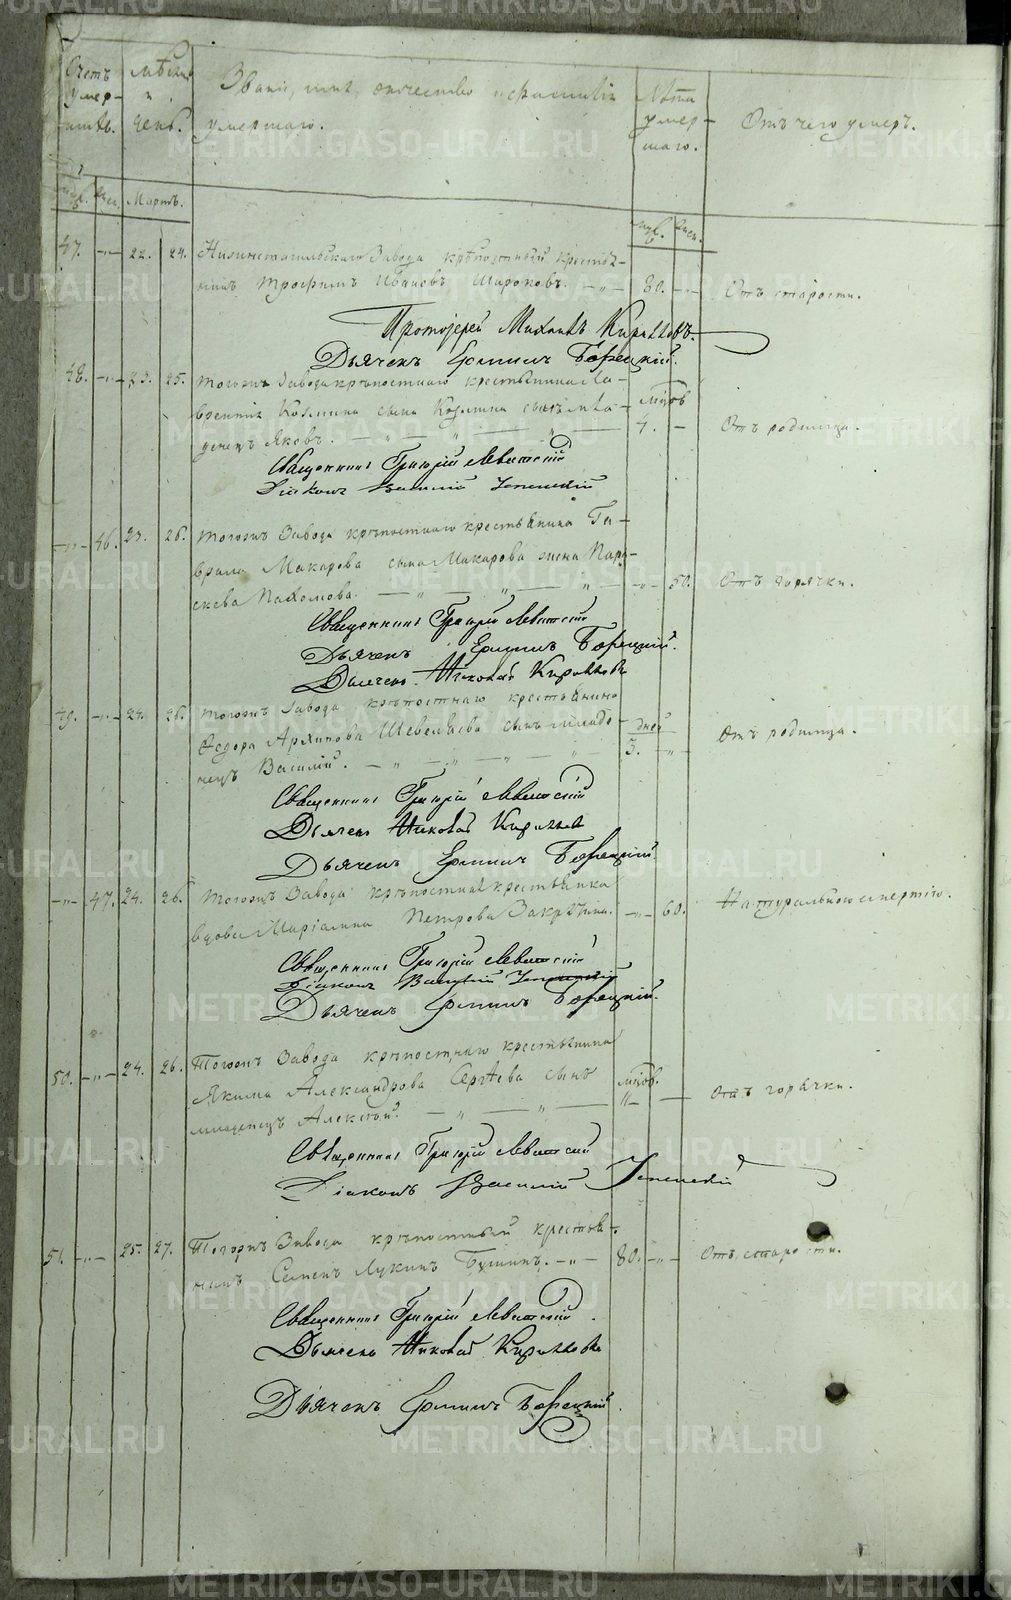 Счетъ умер- шихъ.
Мѣсяцъ и день.
Званіе, имя, отчество и фамилія умершаго.
Лѣта умер- шаго.
Отъ чего умеръ.
Мартъ.
47. -„- 22. 24. Нижнетагильскаго Завода крѣпостный крестья-
нинъ Трофимъ Ивановъ Широковъ. -„- 80. - Отъ старости.
Протоіерей Михаилъ Кирилловъ.
Дьячекъ Ермилъ Борецкій.
48. -„- 23. 25. Тогожъ Завода крѣпостнаго крестьянина Ла-
врентія Козмина сына Козмина сынъ мла-
денецъ Яковъ. - „ - „ - 4. - Отъ родимца.
Священникъ Григорій Левитскій
Діаконъ Василій Успенскій
-„- 46. 23. 26. Тогожъ Завода крѣпостнаго крестьянина Га-
врила Макарова сына Макарова жена Пара-
скева Пахомова. - „ - „ - „ - -„- 50. Отъ горячки.
Священникъ Григорій Левитскій
Дьячекъ Ермилъ Борецкій.
Дьячекъ Николай Кирилловъ
49. -„- 24. 26. Тогожъ Завода крѣпостнаго крестьянина
Ѳедора Архипова Шевелева сынъ младе-
нецъ Василій. - „ - „ - „ - дней 3. -„- Отъ родимца.
Священникъ Григорій Левитскій
Дьячекъ Николай Кирилловъ
Дьячекъ Ермилъ Борецкій
-„- 47. 24. 26. Тогожъ Завода крѣпостная крестьянка
вдова Петрова -„- 60. Натуральною смертію.
Священникъ Григорій Левитскій
Діаконъ Василій Успенскій
Дьячекъ Ермилъ Борецкій.
50. -„- 24. 26. Тогожъ Завода крѣпостнаго крестьянина
Якима Александрова Сергѣева сынъ
младенецъ Алексѣй. - „ - „ - Отъ горячки.
Священникъ Григорій Левитскій
Діаконъ Василій Успенскій
51. -„- 25. 27. Тогожъ Завода крѣпостный крестья-
нинъ Семенъ Лукинъ -„- 80. -„- Отъ старости.
Священникъ Григорій Левитскій.
Дьячекъ Николай Кирилловъ
Дьячекъ Ермилъ Борецкій.
METRIKI.GASO-URAL.RU